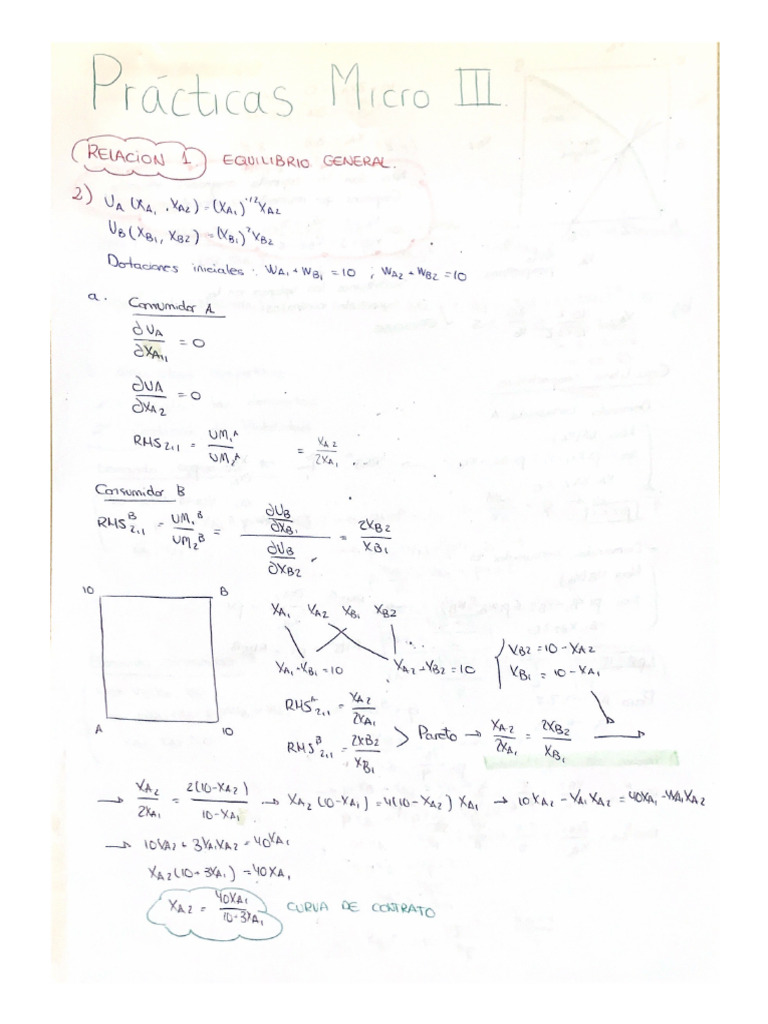 Prácticas Micro III.
RELACION 1 EQUILIBRIO GENERAL.
2) U_A (X_A1, X_A2) = (X_A1)^1/2 X_A2
U_B (X_B1, X_B2) = (X_B1)^2 X_B2
Dotaciones iniciales: W_A1 + W_B1 = 10 ; W_A2 + W_B2 = 10
a. Consumidor A
∂U_A / ∂X_A1 = 0
∂UA / ∂X_A2 = 0
RMS_2,1 = UM_1^A / UM_2^A = X_A2 / 2X_A1
Consumidor B
RMS^B_2,1 = UM_1^B / UM_2^B = (∂U_B / ∂X_B1) / (∂U_B / ∂X_B2) = 2X_B2 / X_B1
10 B
A 10
X_A1 X_A2 X_B1 X_B2
X_A1 + X_B1 = 10 X_A2 + X_B2 = 10
X_B2 = 10 - X_A2
X_B1 = 10 - X_A1
RMS^A_2,1 = X_A2 / 2X_A1
RMS^B_2,1 = 2X_B2 / X_B1
> Pareto → X_A2 / 2X_A1 = 2X_B2 / X_B1 →
→ X_A2 / 2X_A1 = 2(10-X_A2) / 10-X_A1 → X_A2 (10-X_A1) = 4(10-X_A2) X_A1 → 10X_A2 - X_A1 X_A2 = 40X_A1 - 4X_A1 X_A2
→ 10X_A2 + 3X_A1 X_A2 = 40X_A1
X_A2 (10+3X_A1) = 40X_A1
X_A2 = 40X_A1 / 10-3X_A1 CURVA DE CONTRATO